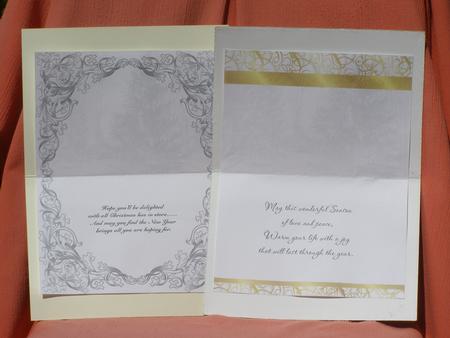 Hope you'll be delighted
with all Christmas has in store......
And may you find the New Year
brings all you are hoping for.
May this wonderful Season
of love and peace,
Warm your life with a joy
that will last through the year.